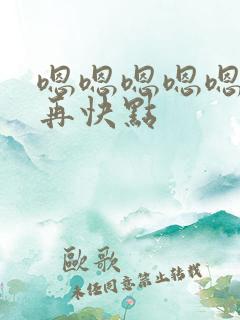 嗯嗯嗯嗯嗯
再快點
歐歌
未经同意禁止转载